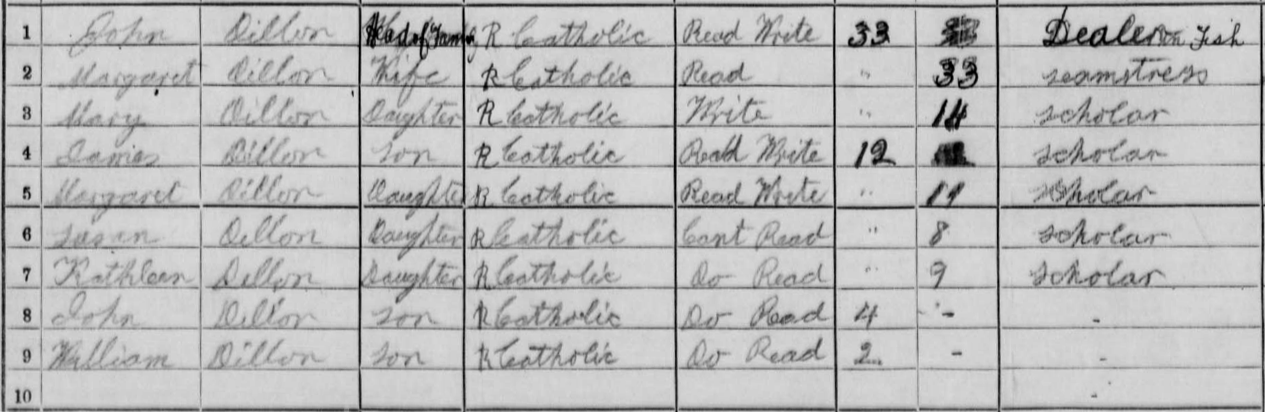 1 John Dillon Head of Family R Catholic Read Write 33 Dealer in Fish
2 Margaret Dillon Wife R Catholic Read " 33 seamstress
3 Mary Dillon Daughter R Catholic Write " 14 scholar
4 James Dillon son R Catholic Read Write 12 scholar
5 Margaret Dillon Daughter R Catholic Read Write " 11 scholar
6 Susan Dillon Daughter R Catholic Cant Read " 8 scholar
7 Kathleen Dillon Daughter R Catholic Do Read " 9 scholar
8 John Dillon son R Catholic Do Read 4 - -
9 William Dillon son R Catholic Do Read 2 - -
10 -